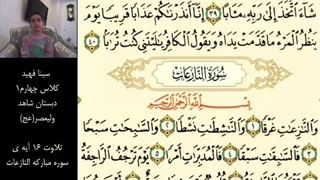 شَآءَ ٱتَّخَذَ إِلَىٰ رَبِّهِۦ مَـَٔابًا ٣٩ إِنَّآ أَنذَرۡنَٰكُمۡ عَذَابٗا قَرِيبٗا يَوۡمَ
يَنظُرُ ٱلۡمَرۡءُ مَا قَدَّمَتۡ يَدَاهُ وَيَقُولُ ٱلۡكَافِرُ يَٰلَيۡتَنِي كُنتُ تُرَٰبَۢا ٤٠
سُورَةُ النَّازِعَاتِ
بِسۡمِ ٱللَّهِ ٱلرَّحۡمَٰنِ ٱلرَّحِيمِ
وَٱلنَّٰزِعَٰتِ غَرۡقٗا ١ وَٱلنَّٰشِطَٰتِ نَشۡطٗا ٢ وَٱلسَّٰبِحَٰتِ سَبۡحٗا
٣ فَٱلسَّٰبِقَٰتِ سَبۡقٗا ٤ فَٱلۡمُدَبِّرَٰتِ أَمۡرٗا ٥ يَوۡمَ تَرۡجُفُ ٱلرَّاجِفَةُ
سینا فهید
کلاس چهارم۱
دبستان شاهد
ولیعصر(عج)
تلاوت ۱۶ آیه ی
سوره مبارکه النازعات